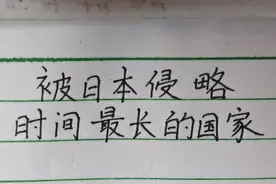 被日本侵略
时间最长的国家